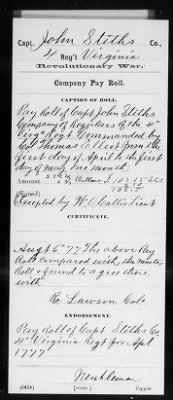 Capt. John Stiths Co.,
4 Reg't Virginia
Revolutionary War.
Company Pay Roll.
CAPTION OF ROLL.
Pay Roll of Capt John Stiths
Company of Regulars of the 4th
Virga Regt Commanded by
Col Thomas Elliot from the
first day of April to the first
day of May One month
Amount
(Signed)
Excepted by W. Lieut
CERTIFICATE.
Augt 6th 77 The above Pay
Roll Compared with the Muster
Roll & found to agree there
with
Ro Lawson Colo
ENDORSEMENT.
Pay Roll of Capt Stiths Co
4th Virginia Regt for Apl
1777
(546A) Copyist.